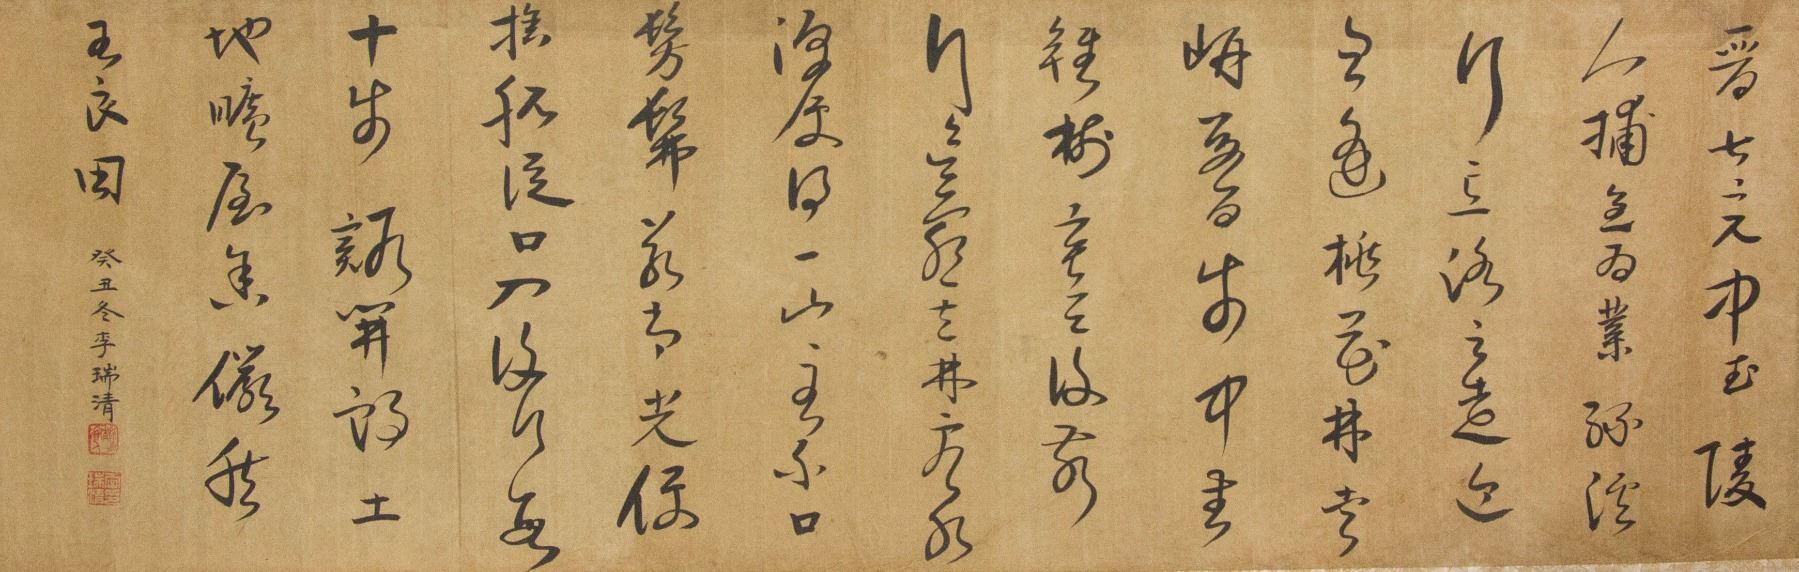 晉太元中武陵
人捕魚為業緣溪
行忘路之遠近
忽逢桃花林夾
岸數百步中無
雜樹異之復前
行欲窮其林盡水
源便得一山有小口
髣髴若有光便
捨船從口入復行數
十步豁開朗土
地曠屋舍儼然
有良田 癸丑冬李瑞清